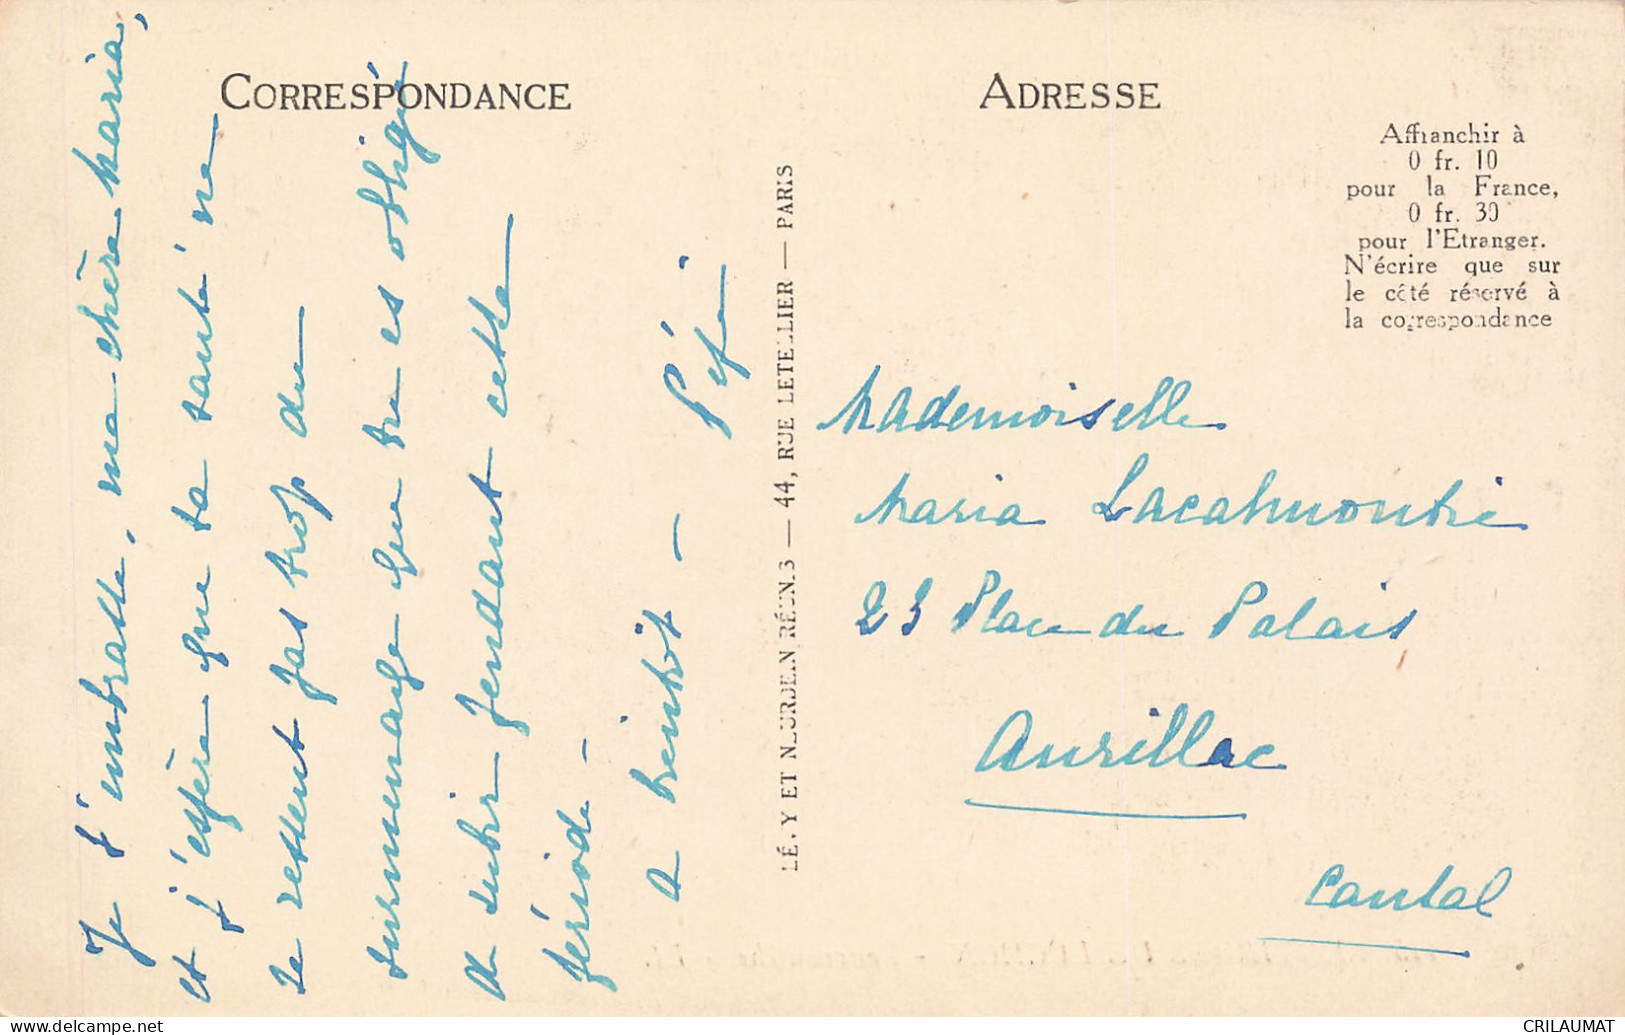 CORRESPONDANCE
Je t'embrasse, ma chère Maria,
et j'espère que ta santé ne
se ressent pas trop du
surmenage que tu es obligée
de subir pendant cette
période -
A bientôt -
ADRESSE
Affranchir à
0 fr. 10
pour la France,
0 fr. 30
pour l'Etranger.
N'écrire que sur
le côté réservé à
la correspondance
LÉVY ET NEURDEIN RÉUNIS — 44, RUE LETELLIER — PARIS
Mademoiselle
Maria
23 Place du Palais
Aurillac
Cantal
www.delcampe.net
CRILAUMAT